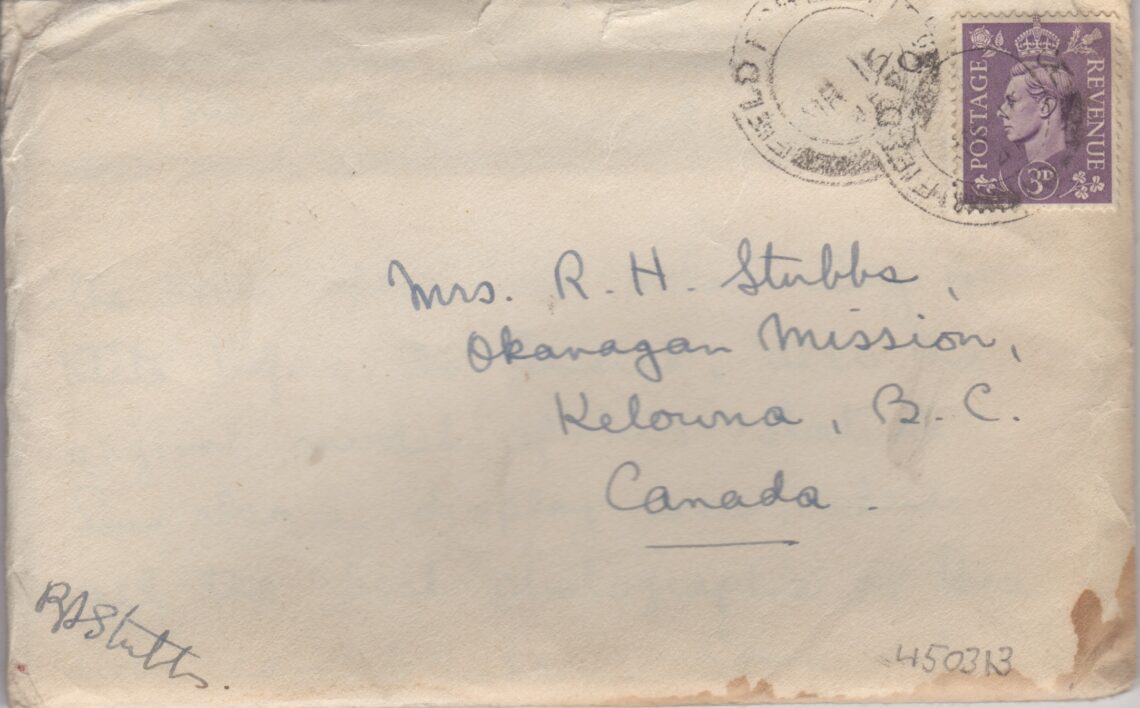 POSTAGE REVENUE
3D
Mrs. R. H. Stubbs,
Okanagan Mission,
Kelowna, B. C.
Canada.
RHStubbs.
450313